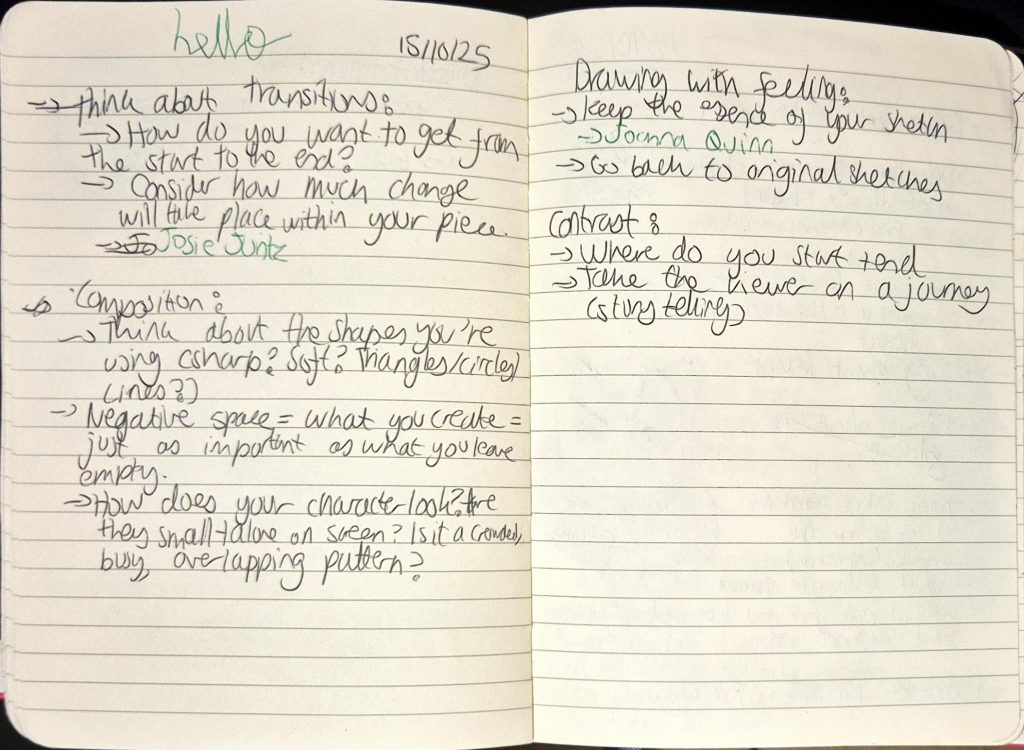 hello
15/10/25
→ think about transitions:
→ How do you want to get from
the start to the end?
→ Consider how much change
will take place within your piece.
→ Jo Josie Juntz
→ Composition:
→ Think about the shapes you're
using (sharp? Soft? Triangles/circles/
Lines?)
→ Negative space = what you create =
just as important as what you leave
empty.
→ How does your character look? Are
they small + alone on screen? Is it a crowded,
busy, overlapping pattern?
Drawing with feeling:
→ keep the esence of your sketch
→ Joanna Quinn
→ Go back to original sketches
Contrast:
→ Where do you start + end
→ Take the viewer on a journey
(story telling)